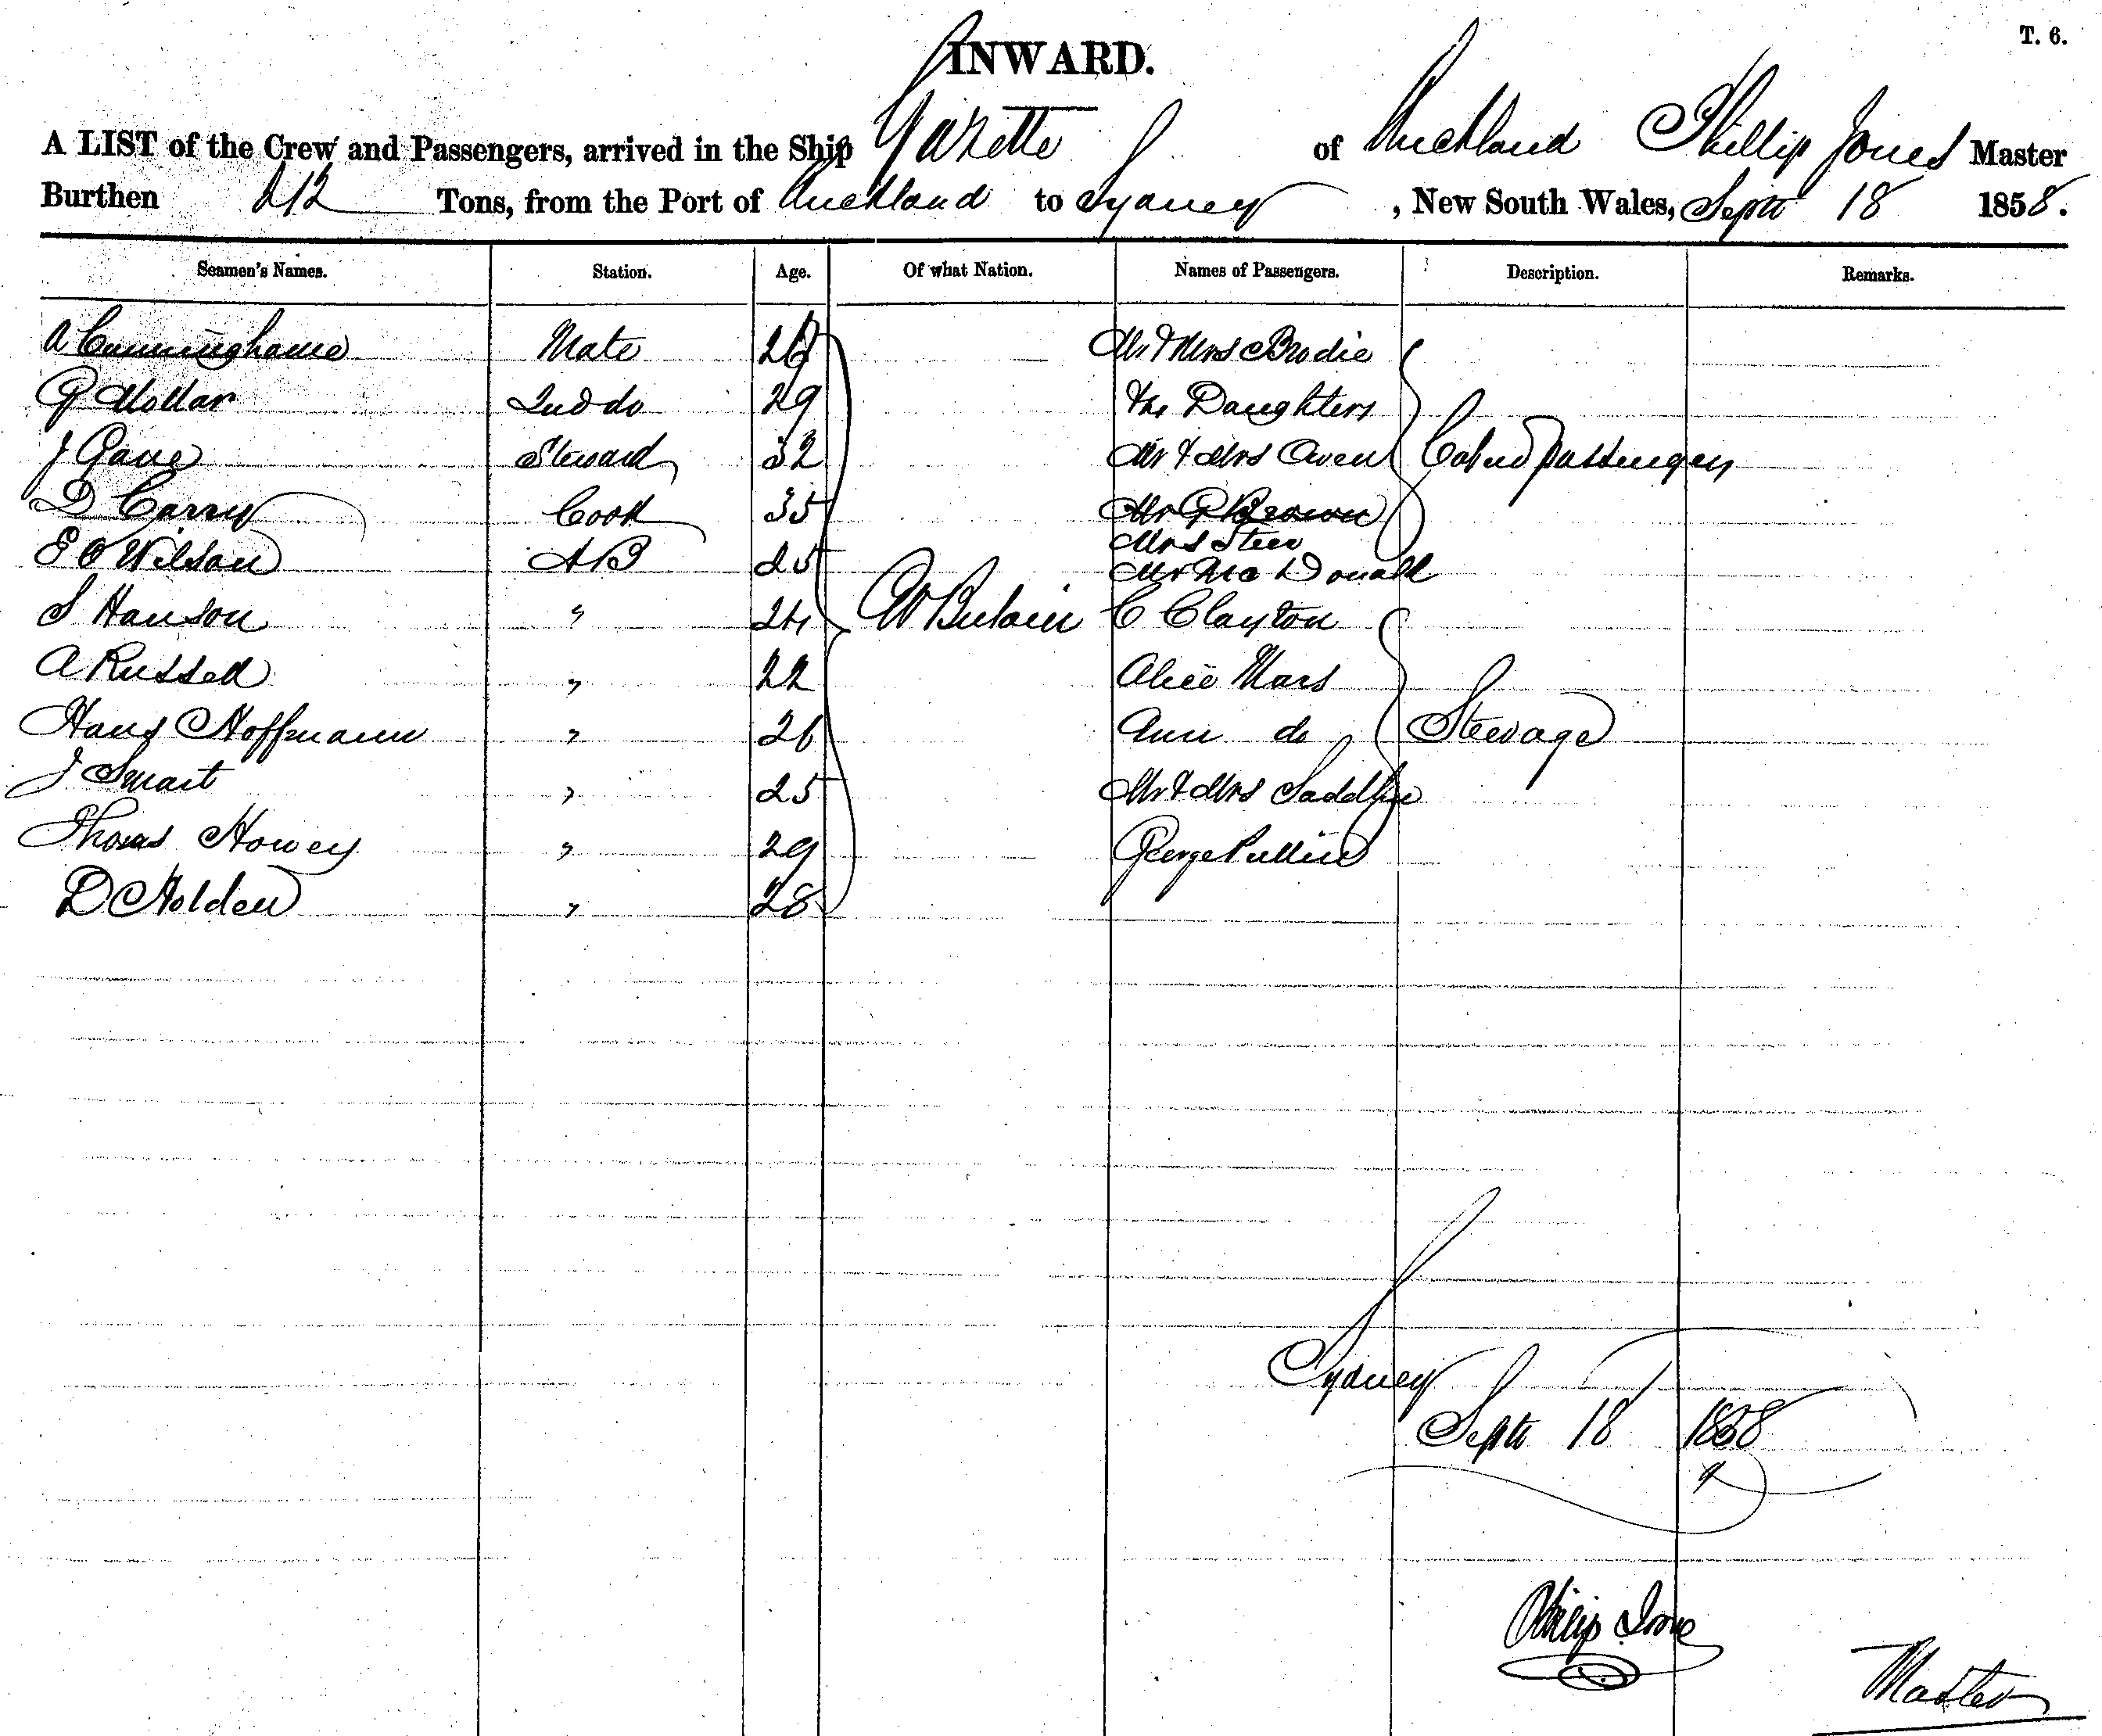 T. 6.
INWARD.
A LIST of the Crew and Passengers, arrived in the Ship Gazette of Auckland Phillip Jones Master
Burthen 212 Tons, from the Port of Auckland to Sydney, New South Wales, Septr 18 1858.
Seamen's Names. Station. Age. Of what Nation. Names of Passengers. Description. Remarks.
A Cunninghame Mate 26 Mr & Mrs Brodie
G Mollar 2nd do 29 Daughters
J Gane Steward 32 Mr & Mrs Owen Cabin passengers
D Carry Cook 35 Mr G Brown
Mrs Steer
E O Wilson AB 25 Mr Mc Donald
S Hanson " 24 Gt Britain C Clayton
A Russell " 22 Alice Mars
Hans Hoffmann " 26 Ann do Steerage
J Smart " 25 Mr & Mrs Saddler
Thomas Howey " 29 George Pullin
D Holden " 28
Sydney
Septr 18 1858
Philip Jones
Master